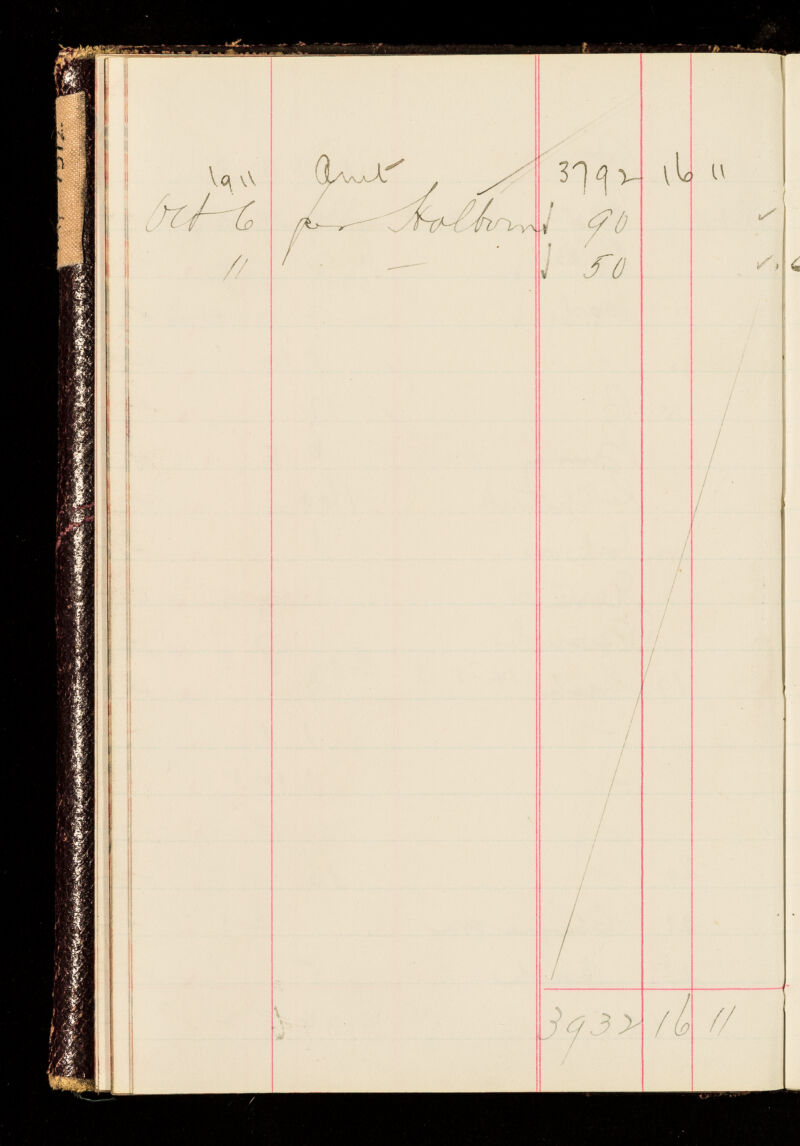 1911 Amt 3792 16 11
Oct 6 per Holborn √ 90 ✓
11 — √ 50 ✓
3932 16 11